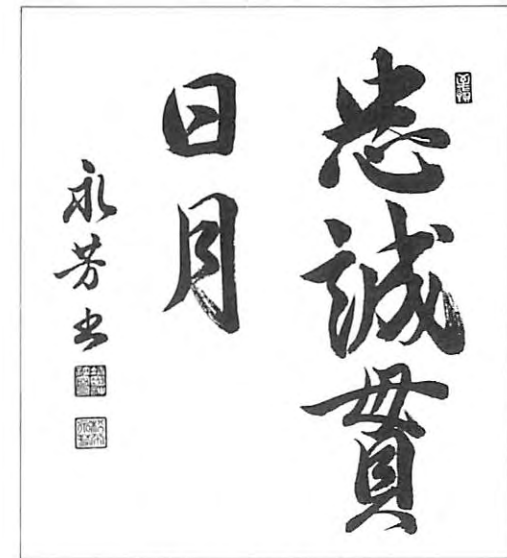 忠誠貫
日月
永芳書